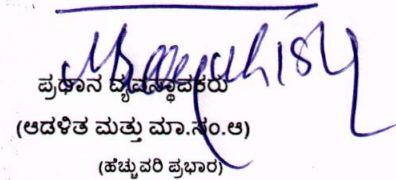 ಪ್ರಧಾನ ವ್ಯವಸ್ಥಾಪಕರು
(ಆಡಳಿತ ಮತ್ತು ಮಾ.ಸಂ.ಅ)
(ಹೆಚ್ಚುವರಿ ಪ್ರಭಾರ)